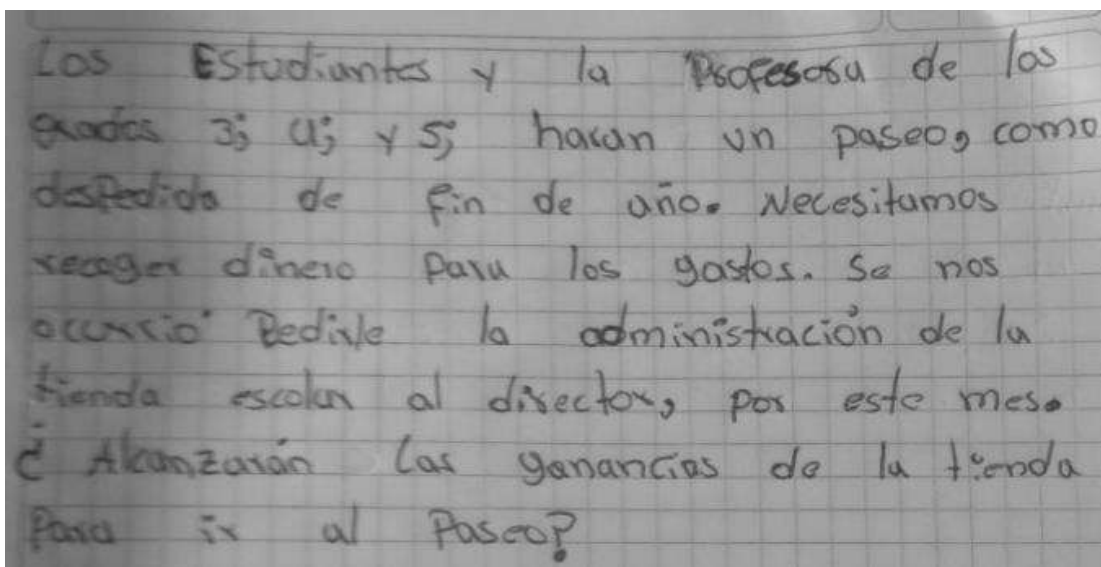 Los Estudiantes y la Profesora de los
grados 3; 4; y 5; haran un paseo, como
despedida de fin de año. Necesitamos
recoger dinero para los gastos. Se nos
ocurrio Pedirle la administración de la
tienda escolar al director, por este mes.
¿ Alcanzarán las ganancias de la tienda
Para ir al Paseo?